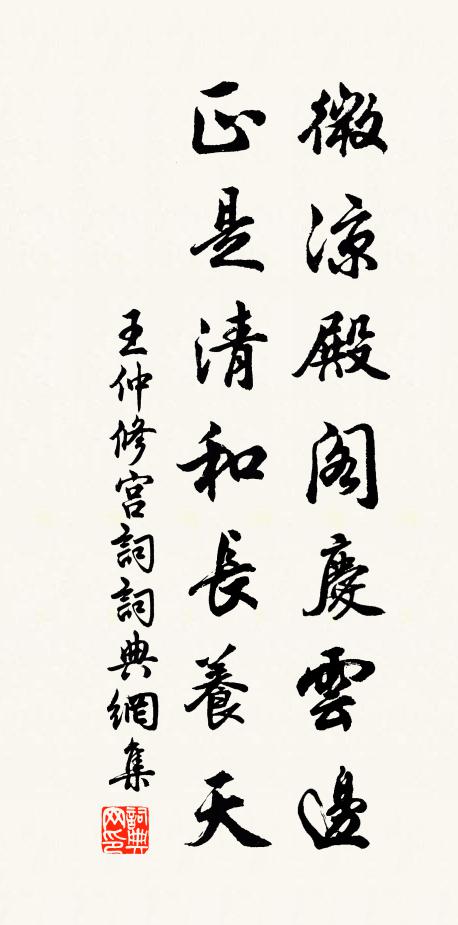 微涼殿阁慶雲邊
正是清和長養天
王仲修宫詞詞典網集
詞典網印